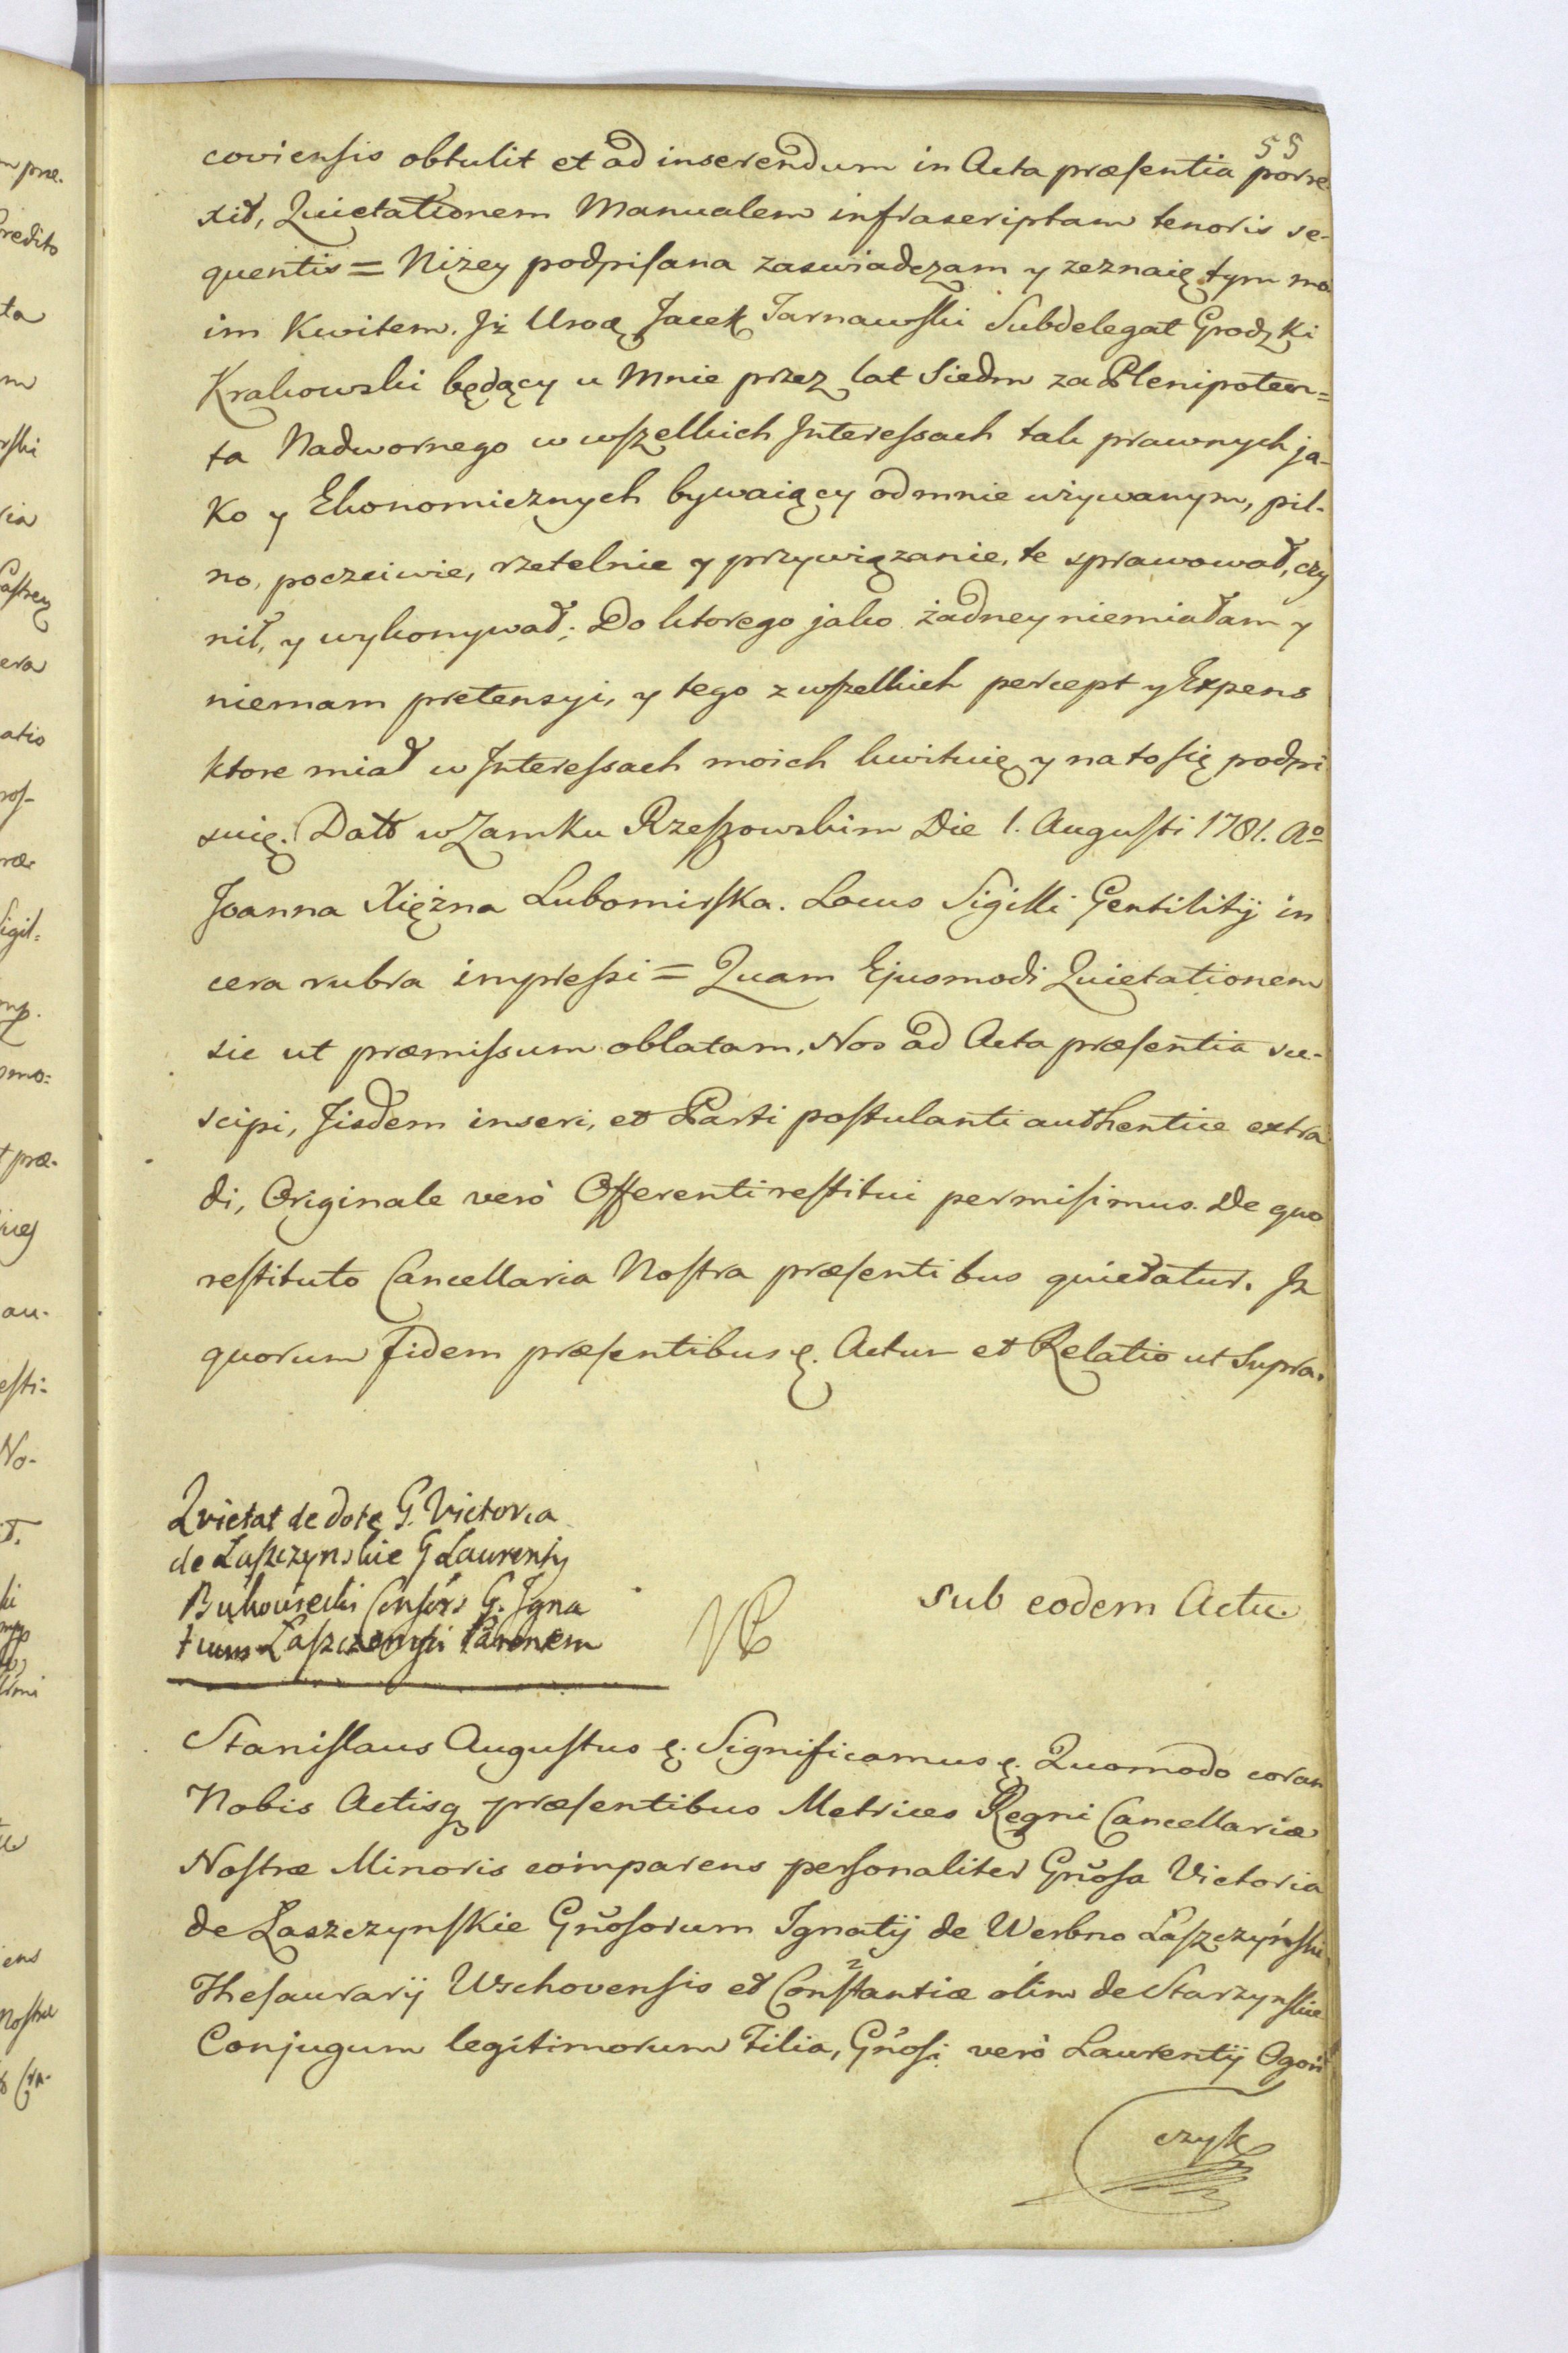 55
coviensis obtulit et ad inserendum in Acta præsentia porre
xit, Quietationem Manualem infrascriptam tenoris se-
quentis = Niżey podpisana zaswiadczam y zeznaię tym mo
im Kwitem. Jż Uroą Jacek Tarnawski Subdelegat Grodzki
Krakowski będący u Mnie przez lat Siedm za Plenipoten=
ta Nadwornego w wszelkich Interessach tak prawnych ja-
ko y Ekonomicznych bywaiący odmnie używanym, pil-
no, poczciwie, rzetelnie y przywiązanie, te sprawował, czy
nił, y wykonywał; Do ktorego jako żadney niemiałam y
niemam pretensyi, y tego z wszelkich percept y Expens
ktore miał w Interessach moich kwituię y na to się podpi
suię. Datt w Zamku Rzeszowskim Die 1. Augusti 1781. Aº
Joanna Xiężna Lubomirska. Locus Sigilli Gentilitij in
cera rubra impressi = Quam Ejusmodi Quietationem
sic ut præmissum oblatam, Nos ad Acta præsentia su-
scipi, Jisdem inseri, et Parti postulanti authentice extra
di, Originale verò Offerenti restitui permisimus. De quo
restituto Cancellaria Nostra præsentibus quietatur. Jn
quorum fidem præsentibus ę. Actum et Relatio ut Supra.
Qvietat de dote G. Victoria
de Laszczynskie G Laurentij
Bukowiecki Consors G. Igna
tium Laszczynski Parentem
sub eodem Actu.
Stanislaus Augustus ę. Significamus ę. Quomodo coram
Nobis Actisq præsentibus Metrices Regni Cancellariæ
Nostræ Minoris comparens personaliter Gñosa Victoria
de Łaszczynskie Gñosorum Ignatij de Werbno Łaszczyński
Thesaurarij Wschovensis et Constantiæ olim de Starzynskie
Conjugum legitimorum Filia, Gñosi verò Laurentij Ogoń
czyk